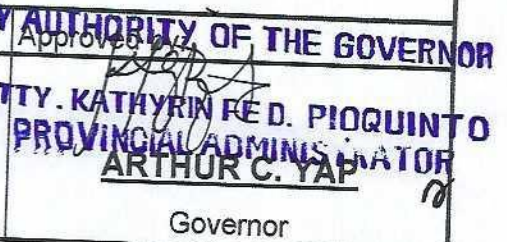 Y AUTHORITY OF THE GOVERNOR
Approved
TTY. KATHYRIN FE D. PIOQUINTO
PROVINCIAL ADMINISTRATOR
ARTHUR C. YAP
Governor